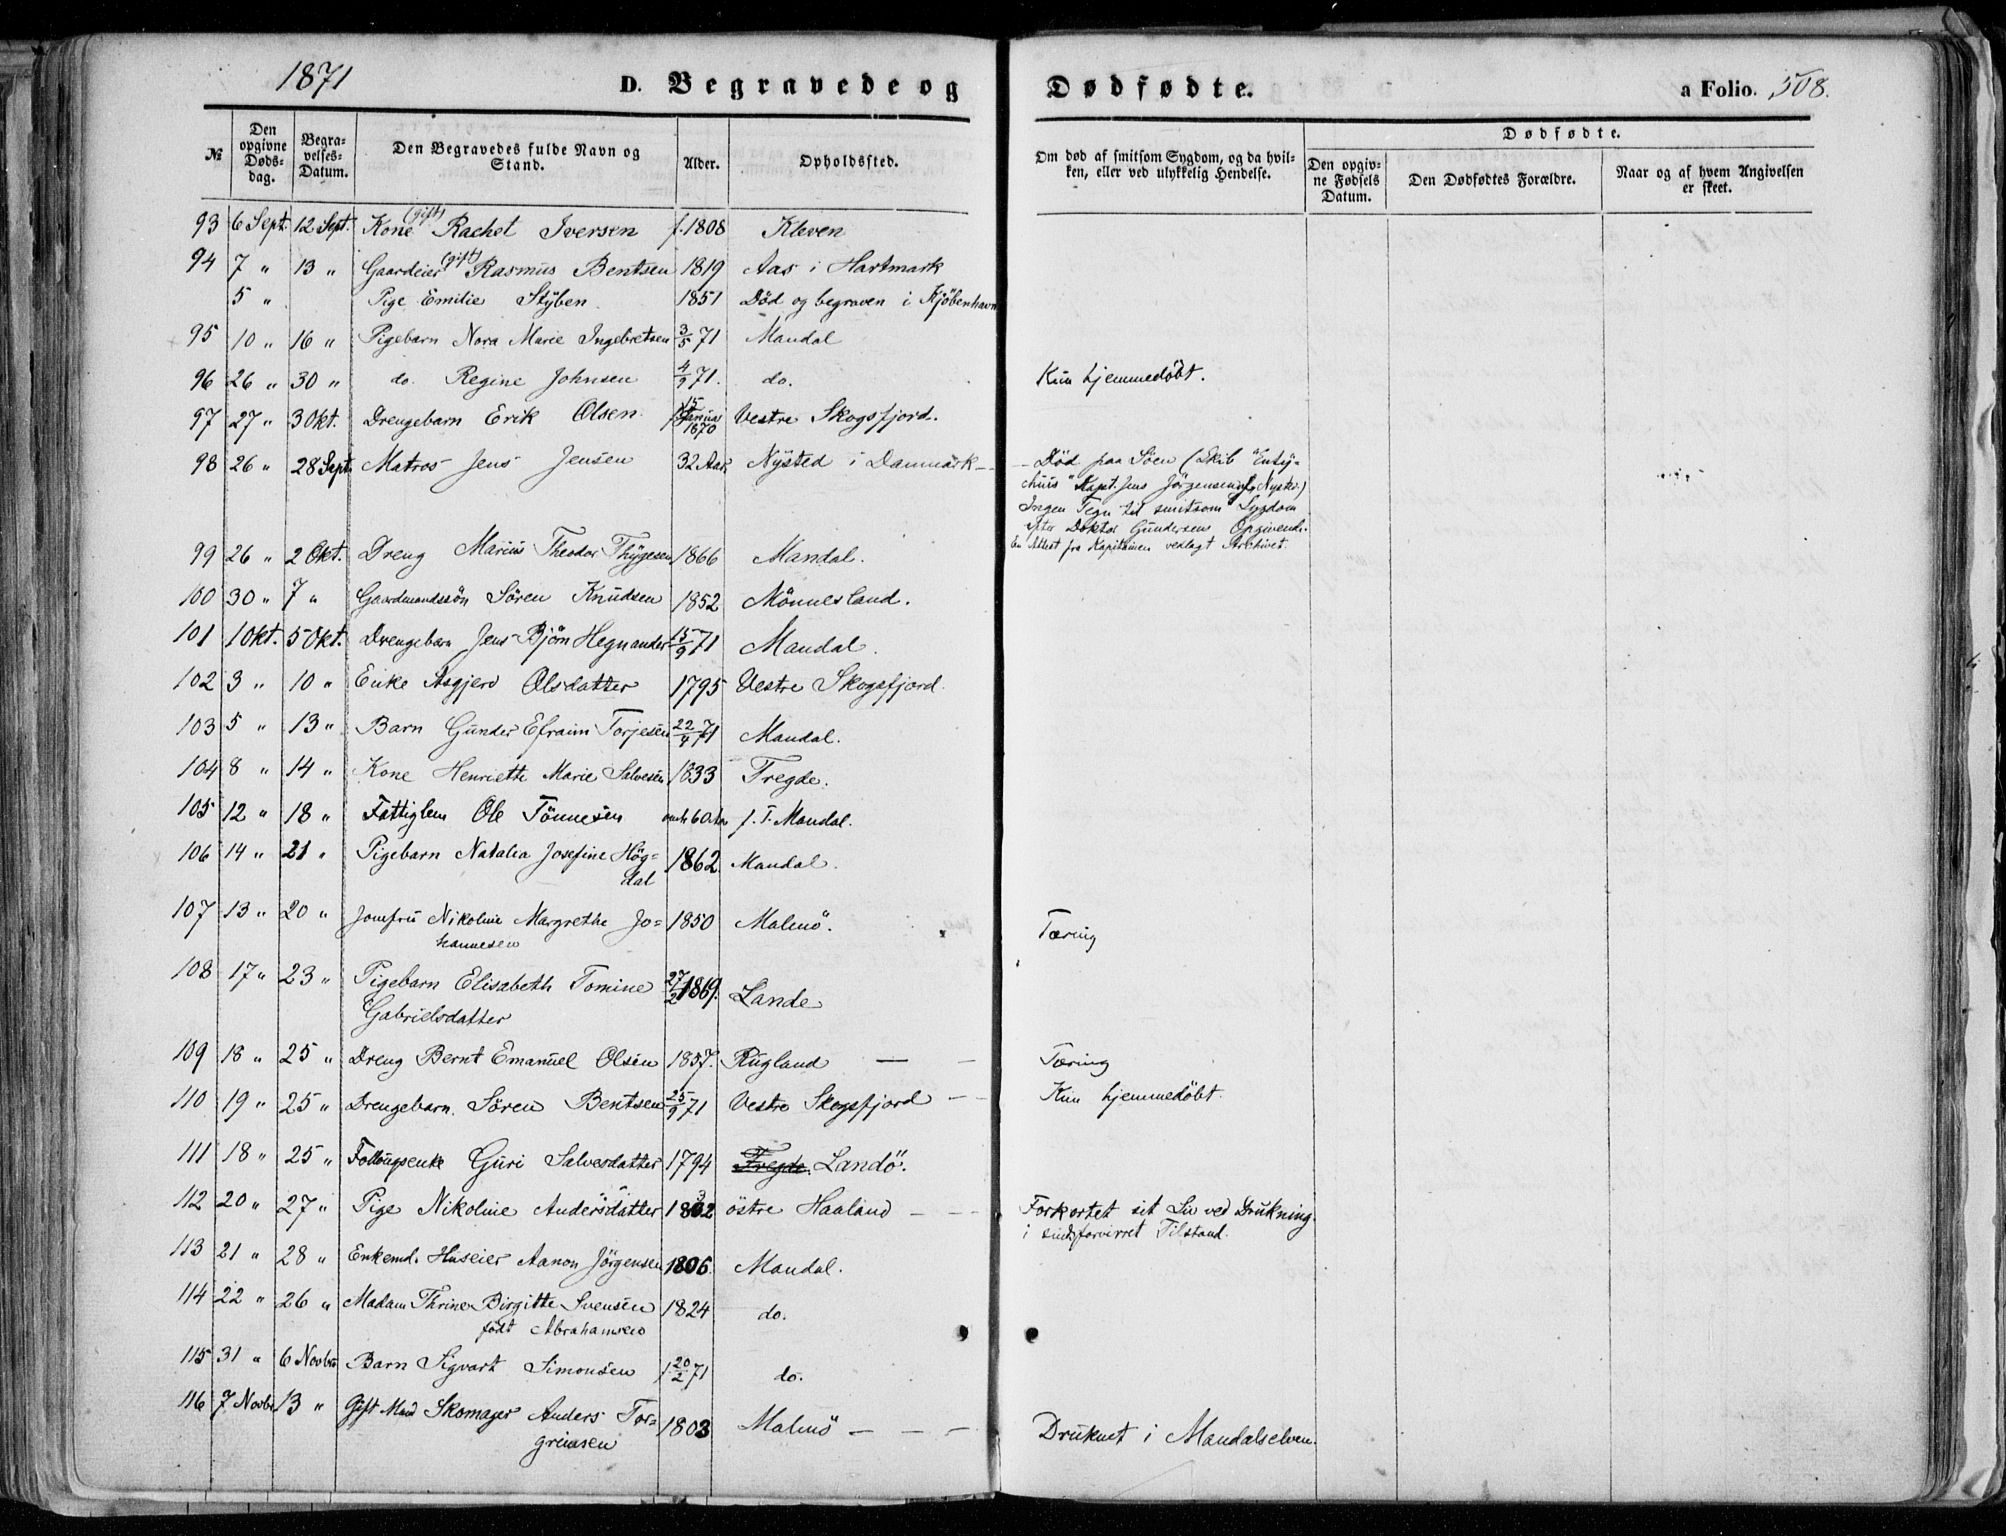 1871
D. Begravede og Dødfødte.
a Folio. 508.
№
Den opgivne Døds-dag.
Begra-velses-Datum.
Den Begravedes fulde Navn og Stand.
Alder.
Opholdssted.
Om død af smitsom Sygdom, og da hvil-ken, eller ved ulykkelig Hendelse.
Dødfødte.
Den opgiv-ne Fødsels Datum.
Den Dødfødtes Forældre.
Naar og af hvem Angivelsen er skeet.
93 6 Sept. 12 Sept. Kone (gift) Rachel Iversen f. 1808 Kleven
94 7 " 13 " Gaardeier (gift) Rasmus Bentsen 1819 Aas i Hartmark
5 " Pige Emilie Styben 1851 Død og begraven i Kjöbenhavn
95 10 " 16 " Pigebarn Nora Marie Ingebretsen 3/5 71 Mandal
96 26 " 30 " do. Regine Johnsen 4/9 71. do. Kun hjemmedöbt.
97 27 " 3 Okt. Drengebarn Erik Olsen 15 Januar 1870 Vestre Skogsfjord.
98 26 " 28 Sept. Matros Jens Jensen 32 Aar Nysted i Danmark - - Död paa Söen (Skib "Euty=
chuis" Kapt. Jens Jörgensen af Nysted)
Ingen Tegn til smitsom Sygdom
efter Doktor Gundersens Opgivende.
En Attest fra Kapitainen vedlagt Archivet.
99 26 " 2 Okt. Dreng Marius Theodor Thygesen 1866 Mandal.
100 30 " 7 " Gaardmandssön Sören Knudsen 1852 Mönnesland.
101 1 Okt. 5 Okt. Drengebarn Jens Bjön Hegnander 15/9 71 Mandal.
102 3 " 10 " Enke Asgjerd Olsdatter 1795 Vestre Skogsfjord.
103 5 " 13 " Barn Gunder Efraim Torjesen 22/4 71 Mandal.
104 8 " 14 " Kone Henriette Marie Salvesen 1833 Tregde.
105 12 " 18 " Fattiglem Ole Tönnesen omtr 60 Aar f. T. Mandal.
106 14 " 21 " Pigebarn Natalia Josefine Hög=
dal 1862 Mandal.
107 13 " 20 " Jomfru Nikoline Margrethe Jo=
hannesen 1850 Malmö. Tæring
108 17 " 23 " Pigebarn Elisabeth Tomine
Gabrielsdatter 27/2 1869. Lande
109 18 " 25 " Dreng Bernt Emanuel Olsen 1857. Rugland — - Tæring
110 19 " 25 " Drengebarn. Sören Bentsen 25/9 71 Vestre Skogsfjord - - Kun hjemmedöbt.
111 18 " 25 " Follougsenke Guri Salvesdatter 1794 Tregde. Landö.
112 20 " 27 " Pige Nikoline Andersdatter östre Haaland - - - Forkortet sit Liv ved Drukning
i sindsforvirret Tilstand.
113 21 " 28 " Enkemd. Huseier Aanon Jörgensen 1806. Mandal.
114 22 " 26 " Madam Thrine Birgitte Svensen
födt Abrahamsen 1824 do.
115 31 " 6 Novbr Barn Sigvart Simonsen f. 20/2 71 do.
116 7 Novbr 13 " Gift Mand Skomager Anders Tor=
grimsen 1803 Malmö - - - Druknet i Mandalselven.